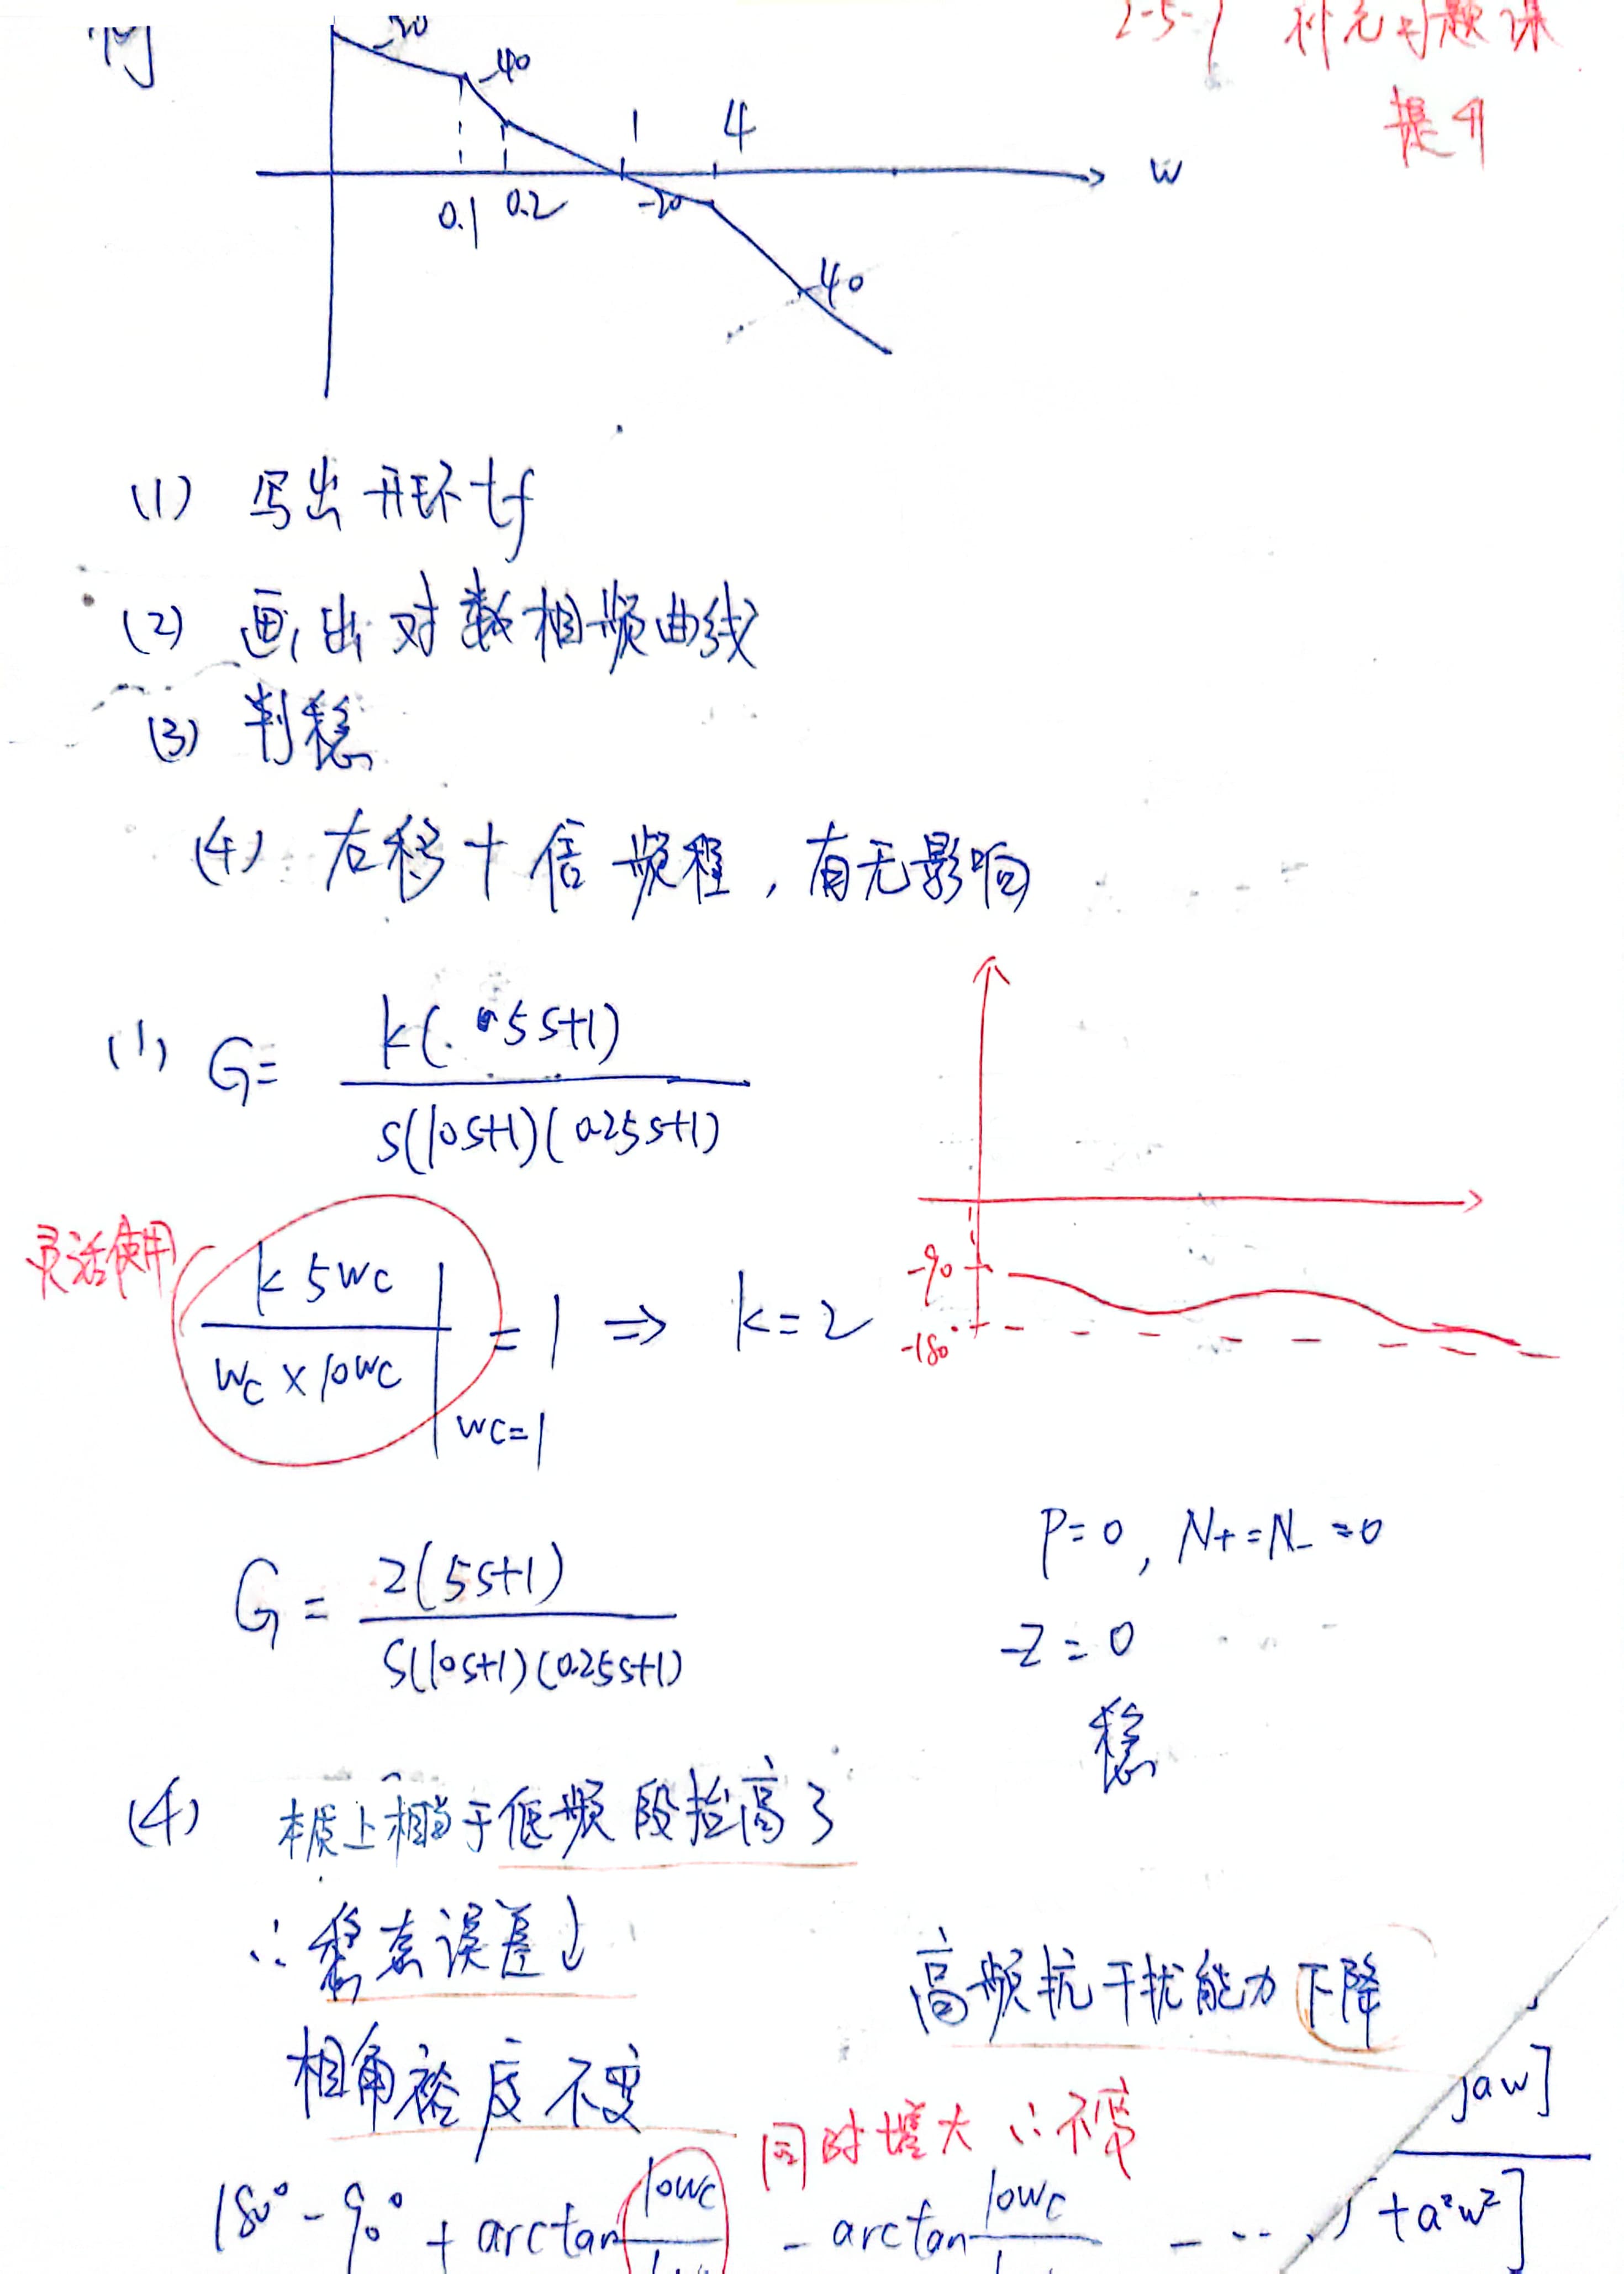 例
2-5-1 补充习题课
提升
-20
-40
1 4
w
0.1 0.2 -20
-40
(1) 写出开环tf
(2) 画出对数相频曲线
(3) 判稳
(4) 右移十倍频程，有无影响
(1) G= k(5s+1)
s(10s+1)(0.25s+1)
灵活使用
k 5wc
wc × 10wc
wc=1
= 1 ⇒ k=2
-90
-180
G = 2(5s+1)
s(10s+1)(0.25s+1)
P=0, N+=N-=0
Z=0
稳
(4) 本质上相当于低频段抬高了
∴ 稳态误差↓
高频抗干扰能力下降
相角裕度不变
同时增大 ∴不变
180°-90° + arctan 10wc - arctan 10wc - ...
jaw]
+a²w²]